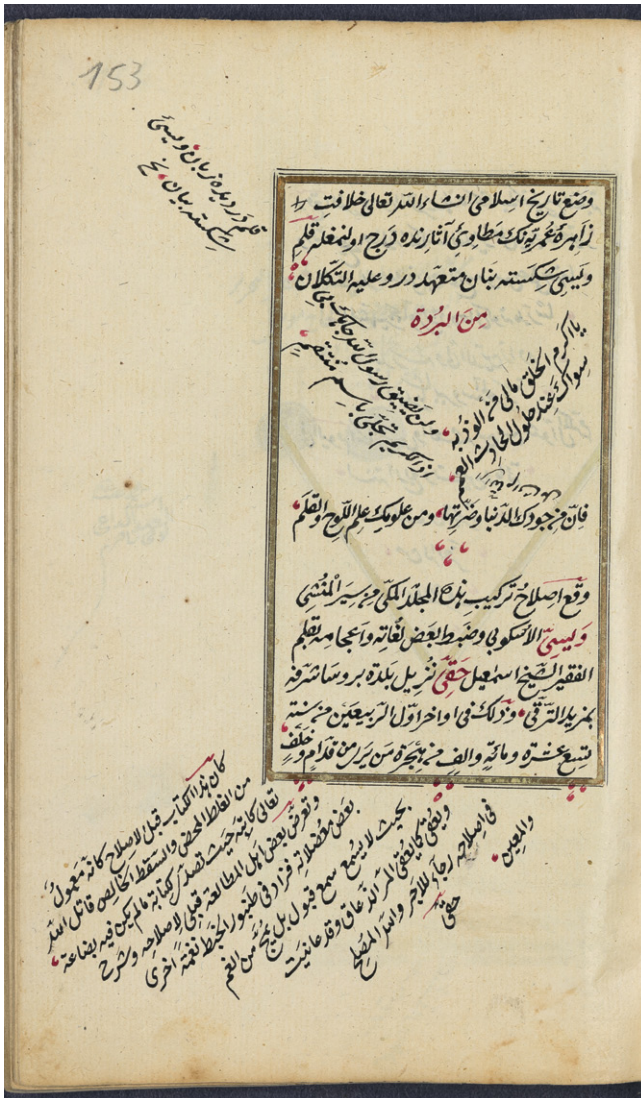 153
قلم دردیده زبان ویسئ
شکسته بیان نخ
وضع تاریخ اسلامی انشاء الله تعالی خلافت
زاهرهٔ عمریه نك مطاوئ آثارنده درج اولنمغله قلم
ویسی شکسته بنان متعهددر وعلیه التکلان
من البردة
یا اکرم الخلق مالی من الوذ به
سواك عند حلول الحادث العمم
ولن یضیق رسول الله جاهك بی
اذا الکریم تجلی باسم منتقم
فان من جودك الدنیا وضرتها ومن علومك علم اللوح والقلم
وقع اصلاح ترکیب هذه المجلد المکی من سیر المنشی
ویسی الاسکوبی وضبط بعض لغاته واعجامه بقلم
الفقیر الشیخ اسمعیل حقی نزیل بلدة بروسا شرفه
بمزید الترقی وذلك فی اواخر اول الربیعین من سنة
تسع عشرة ومائة والف من هجرة من یری من قدام وخلف
کان هذا الکتاب قبل الاصلاح کانه معمول
من الغلط المحض والسقط الخالص قاتل الله
تعالی کاتبه حیث تصدر کتابة مالم یکن فیه بضاعة
وتعرض بعض اهل المطالعة قبلی لاصلاحه وشرح
بعض معضلاته فزاد فی طنبور الخبط نغمة اخری
بحیث لا یسمع سمع قبول بل یمج من الفم
ویعقی کما یعقی المر الذعاق وقد عانیت
فی اصلاحه رجاء للاجر والله المصلح
والمعین
حقی